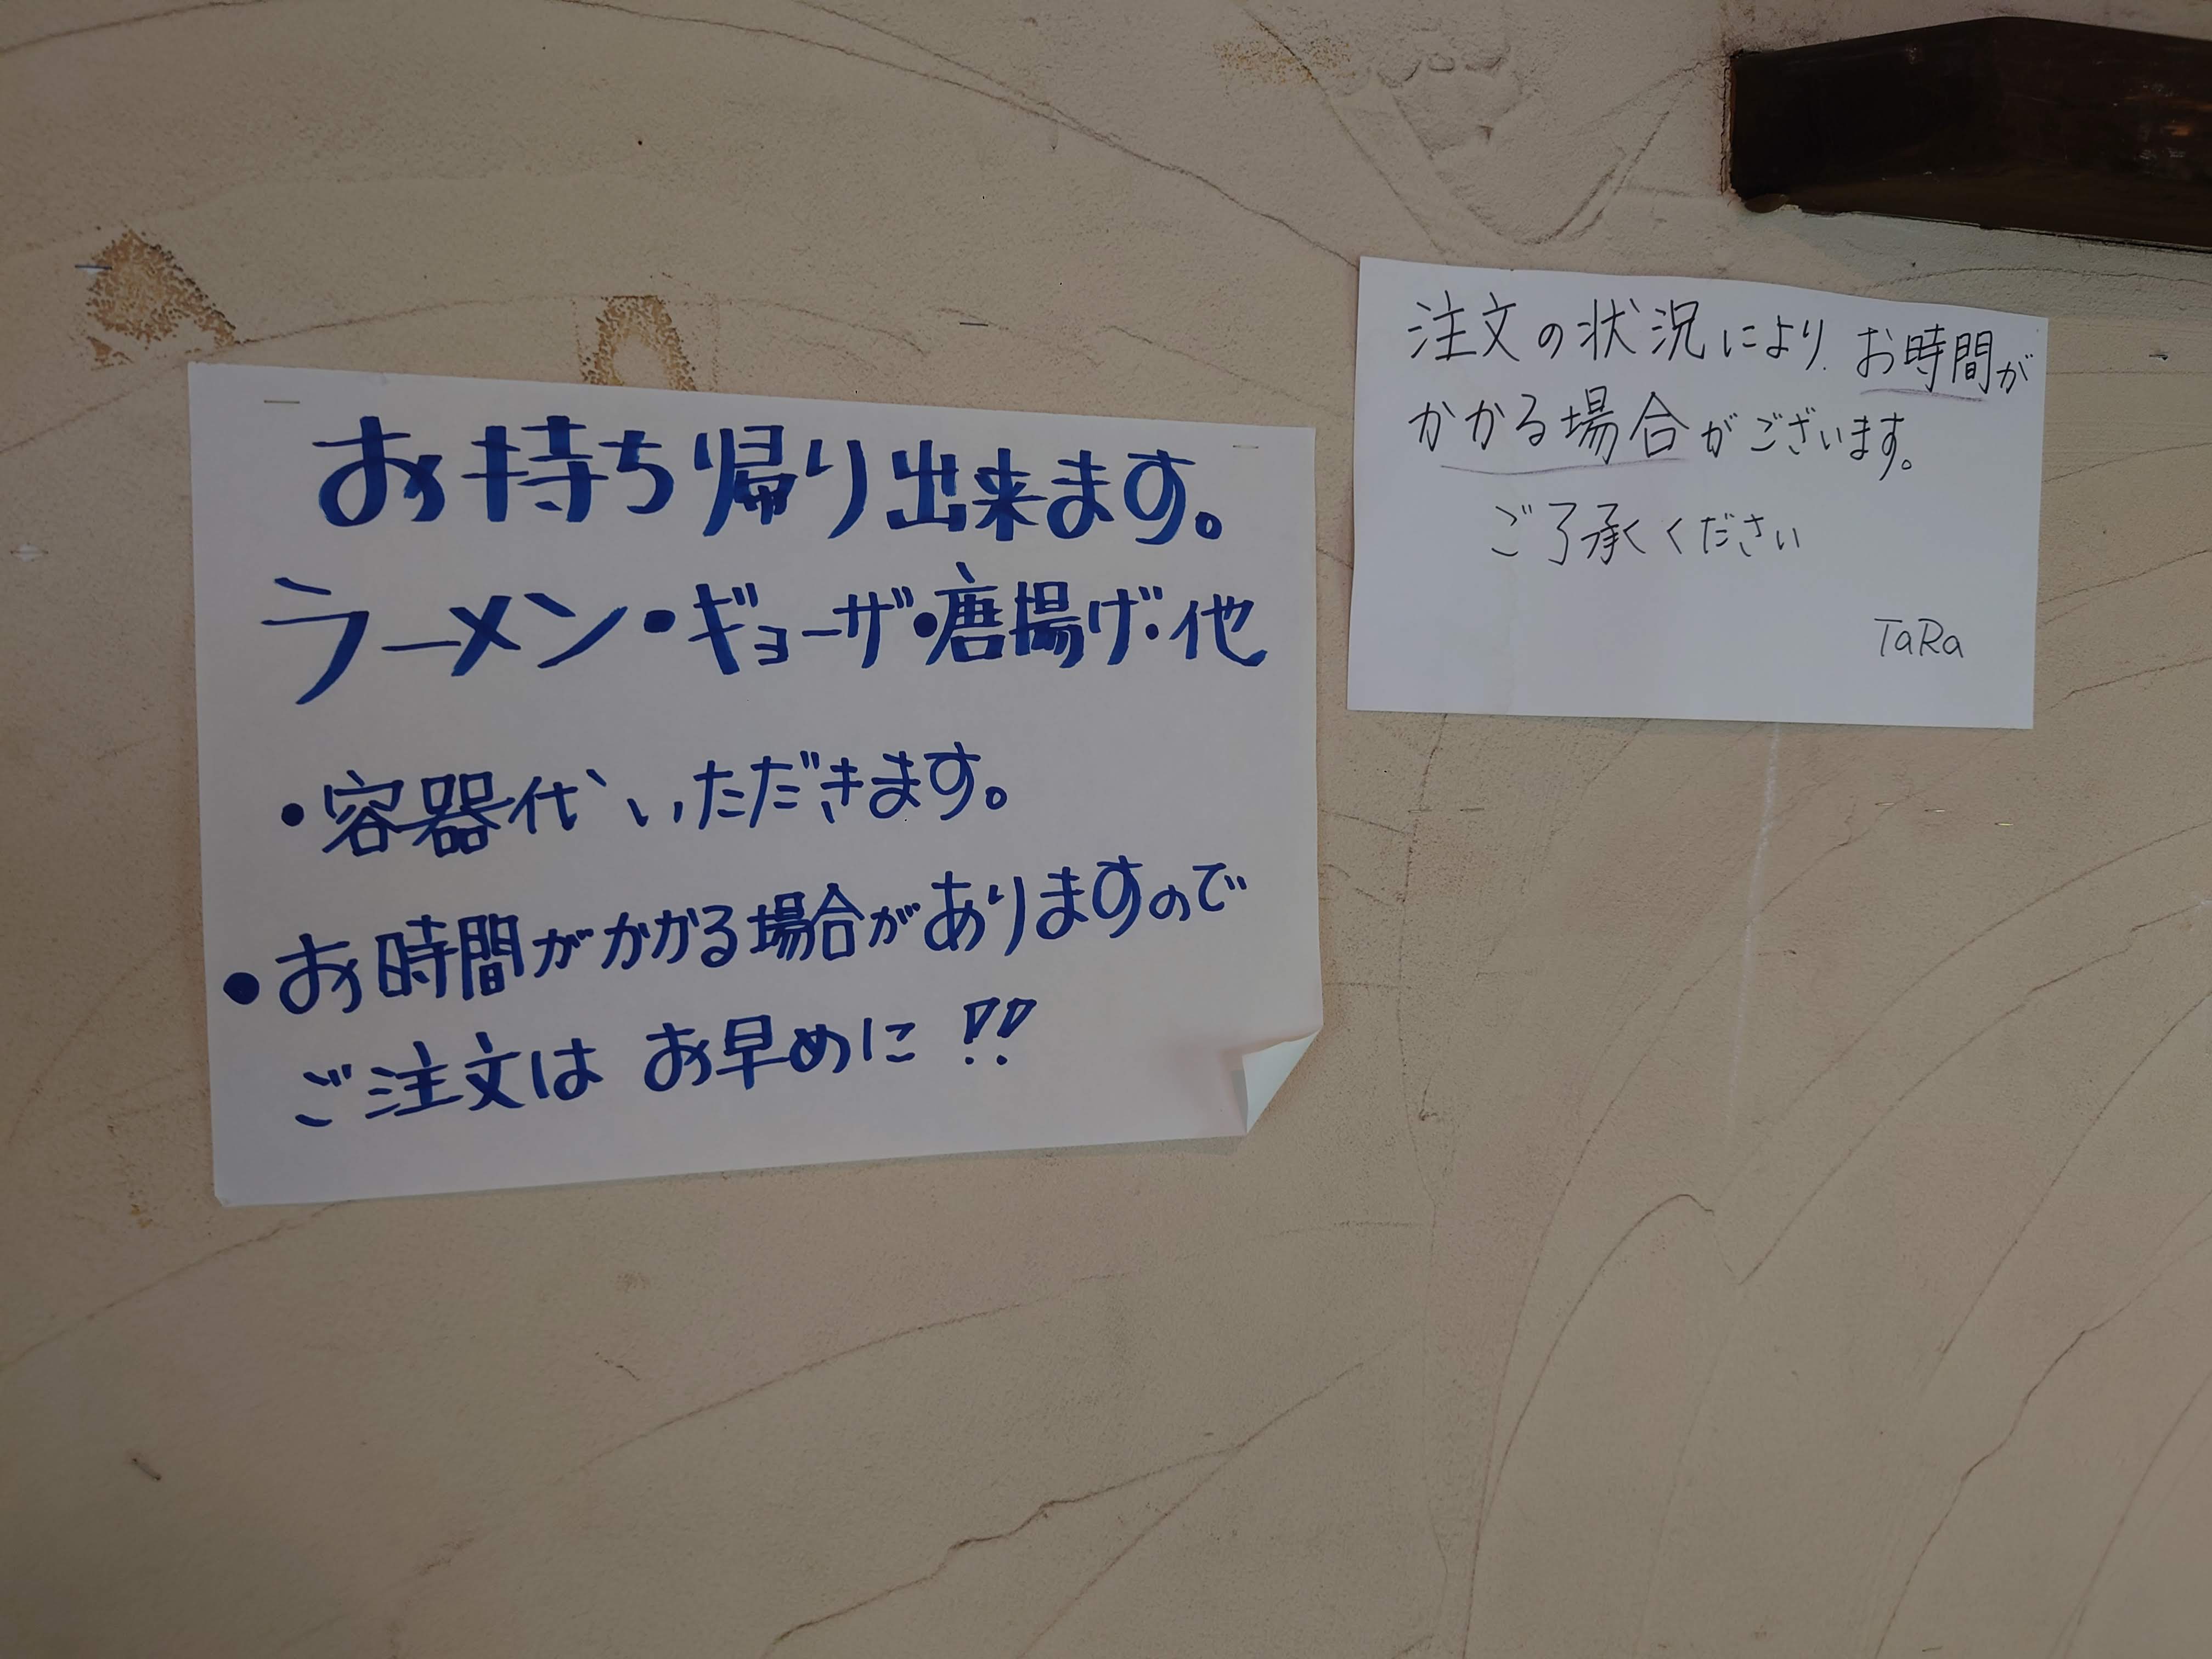 お持ち帰り出来ます。
ラーメン・ギョーザ・唐揚げ・他
・容器代いただきます。
・お時間がかかる場合がありますので
ご注文は お早めに!!
注文の状況により、お時間が
かかる場合がございます。
ご了承ください
TaRa